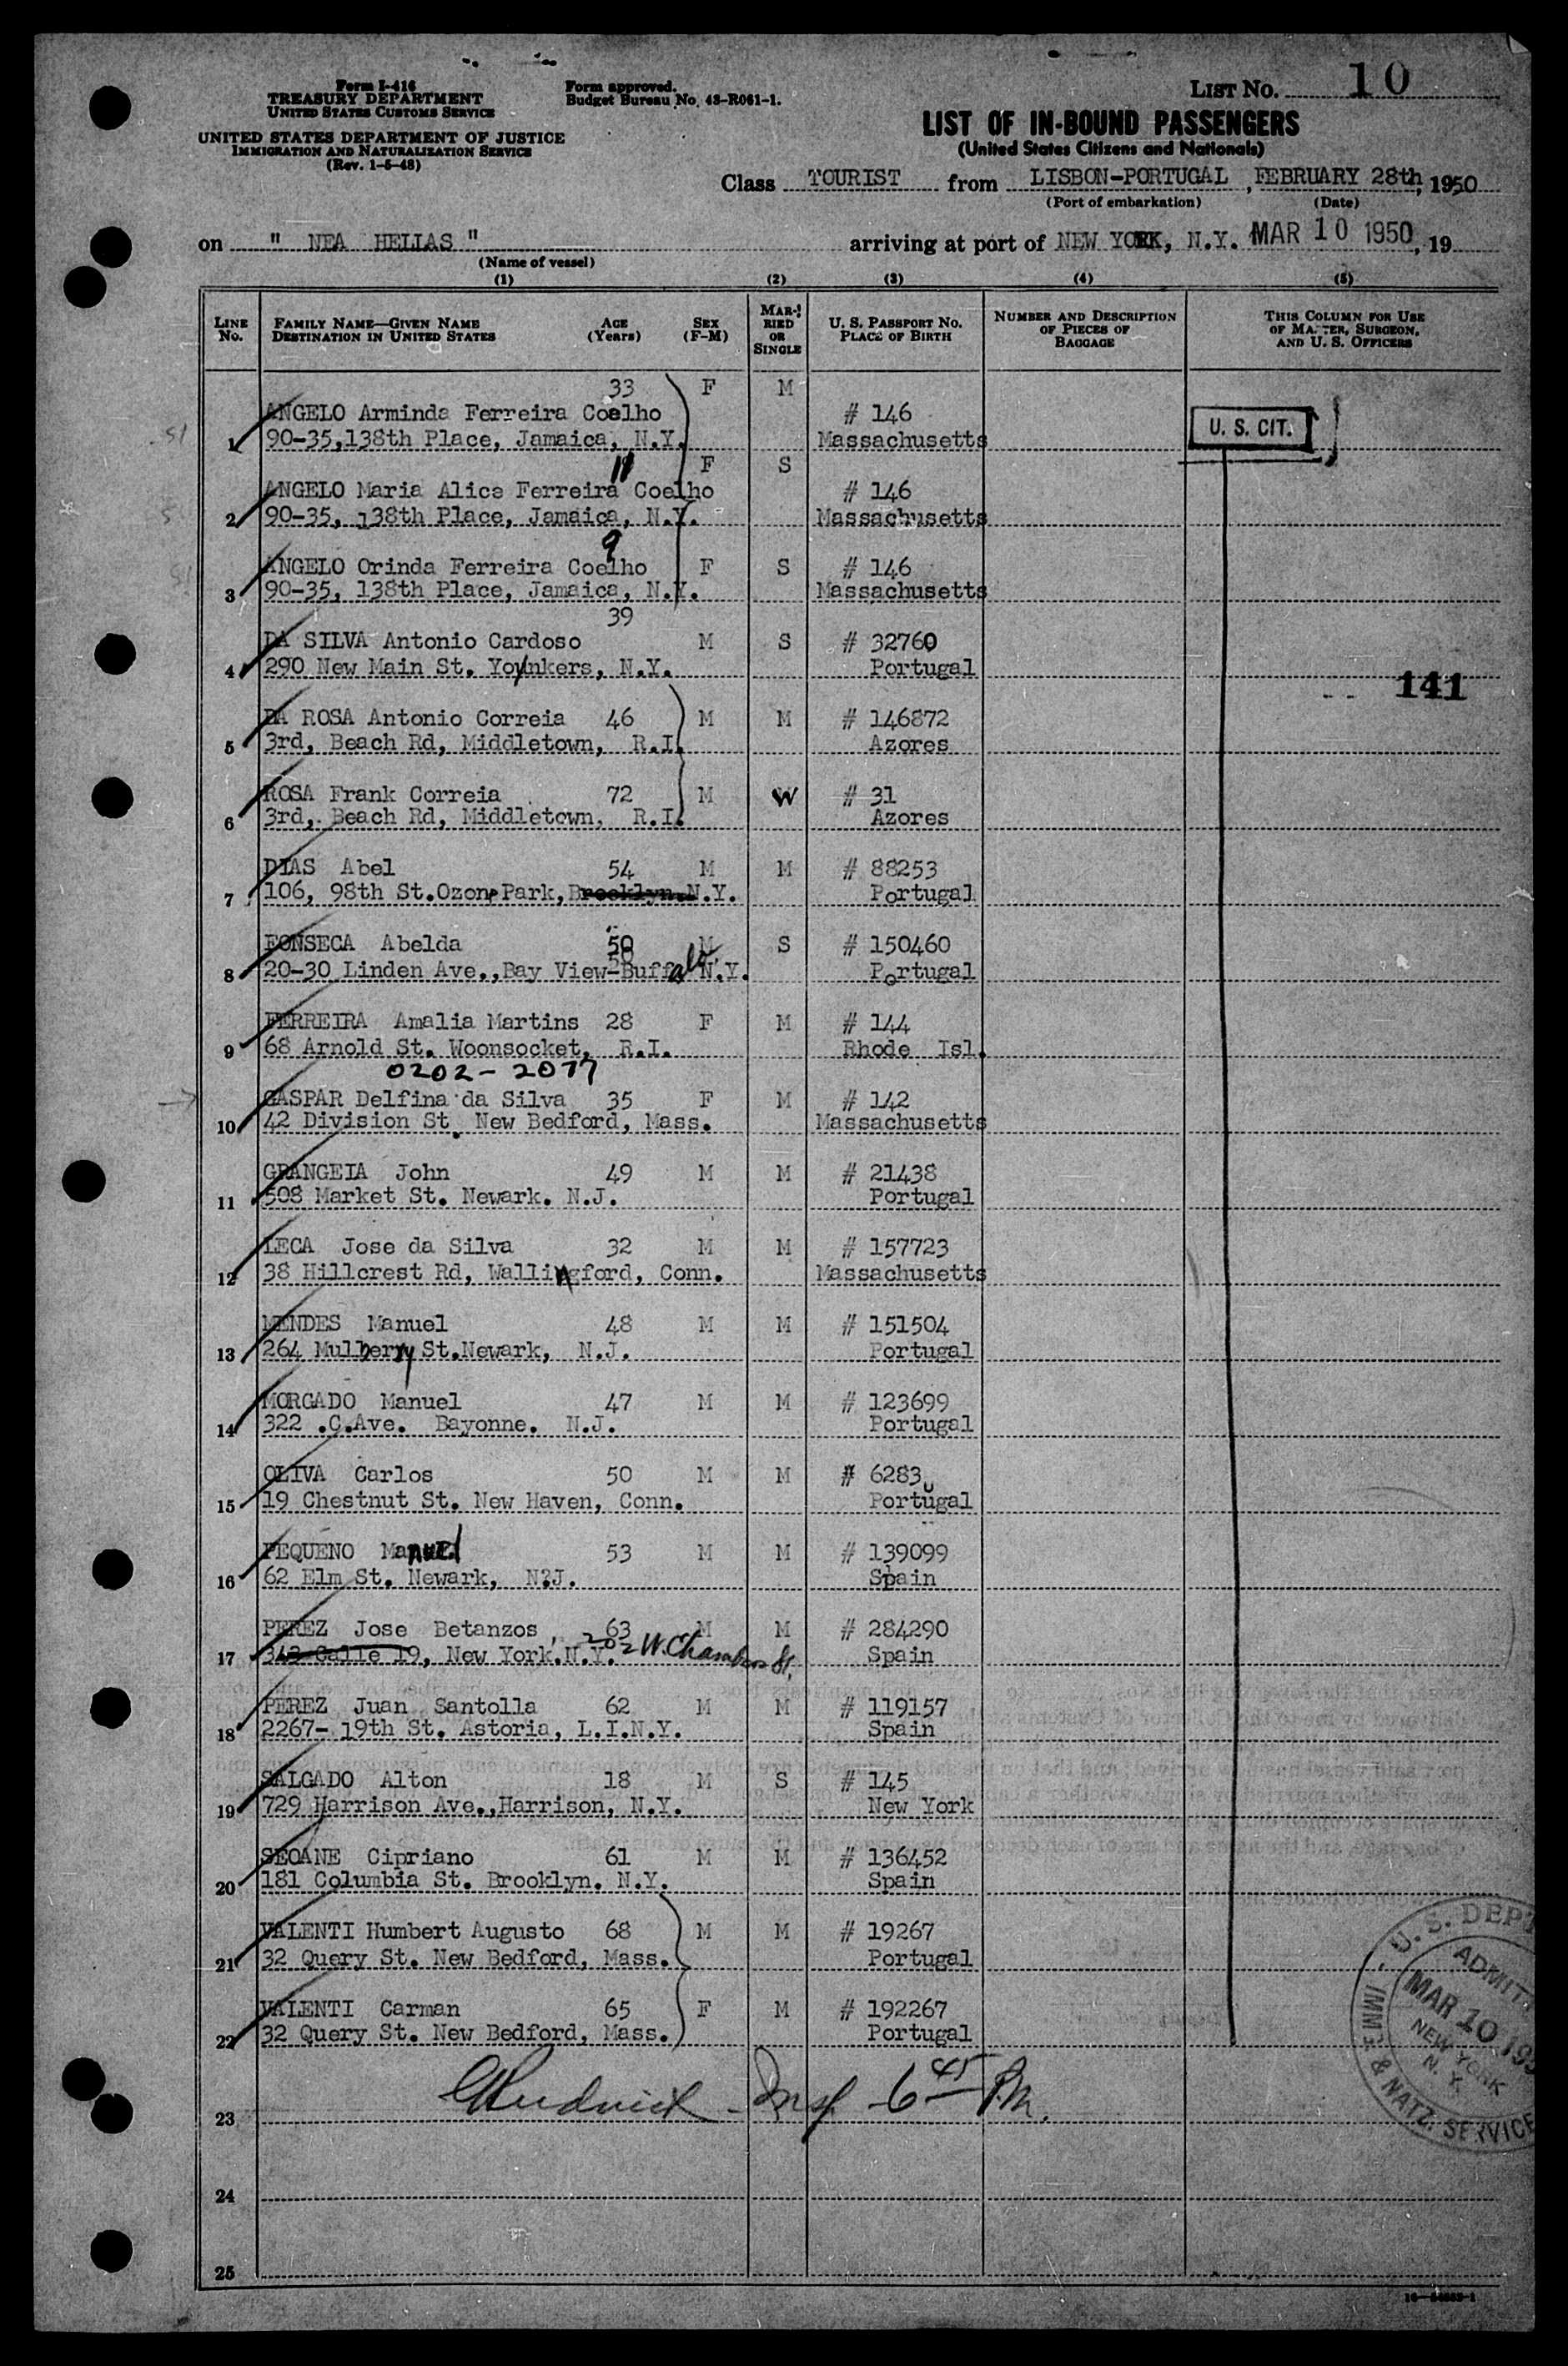 Form I-416
TREASURY DEPARTMENT
UNITED STATES CUSTOMS SERVICE
UNITED STATES DEPARTMENT OF JUSTICE
IMMIGRATION AND NATURALIZATION SERVICE
(Rev. 1-5-48)
Form approved.
Budget Bureau No. 43-R061-1.
LIST NO. 10
LIST OF IN-BOUND PASSENGERS
(United States Citizens and Nationals)
Class TOURIST from LISBON-PORTUGAL, FEBRUARY 28th, 1950
(Port of embarkation) (Date)
on " NEA HELIAS " arriving at port of NEW YORK, N.Y. MAR 10 1950, 19
(Name of vessel)
(1) (2) (3) (4) (5)
LINE No. FAMILY NAME—GIVEN NAME DESTINATION IN UNITED STATES AGE (Years) SEX (F-M) MARRIED OR SINGLE U. S. PASSPORT NO. PLACE OF BIRTH NUMBER AND DESCRIPTION OF PIECES OF BAGGAGE THIS COLUMN FOR USE OF MASTER, SURGEON, AND U. S. OFFICERS
33 F M
ANGELO Arminda Ferreira Coelho # 146
1 90-35,138th Place, Jamaica, N.Y. Massachusetts U. S. CIT.
11 F S
ANGELO Maria Alice Ferreira Coelho # 146
2 90-35, 138th Place, Jamaica, N.Y. Massachusetts
9
ANGELO Orinda Ferreira Coelho F S # 146
3 90-35, 138th Place, Jamaica, N.Y. Massachusetts
39
DA SILVA Antonio Cardoso M S # 32760
4 290 New Main St. Yonkers, N.Y. Portugal
141
DA ROSA Antonio Correia 46 M M # 146872
5 3rd, Beach Rd, Middletown, R.I. Azores
ROSA Frank Correia 72 M W # 31
6 3rd, Beach Rd, Middletown, R.I. Azores
DIAS Abel 54 M M # 88253
7 106, 98th St.Ozone Park, Brooklyn.N.Y. Portugal
FONSECA Abelda 50 M S # 150460
8 20-30 Linden Ave.,Bay View-Buffalo, N.Y. Portugal
FERREIRA Amalia Martins 28 F M # 144
9 68 Arnold St. Woonsocket, R.I. Rhode Isl.
0202-2077
GASPAR Delfina da Silva 35 F M # 142
10 42 Division St. New Bedford, Mass. Massachusetts
GRANGEIA John 49 M M # 21438
11 508 Market St. Newark. N.J. Portugal
LECA Jose da Silva 32 M M # 157723
12 38 Hillcrest Rd, Wallingford, Conn. Massachusetts
MENDES Manuel 48 M M # 151504
13 264 Mulberry St.Newark, N.J. Portugal
MORGADO Manuel 47 M M # 123699
14 322 .C.Ave. Bayonne. N.J. Portugal
OLIVA Carlos 50 M M # 6283
15 19 Chestnut St. New Haven, Conn. Portugal
PEQUENO Manuel 53 M M # 139099
16 62 Elm St. Newark, N?J. Spain
PEREZ Jose Betanzos 63 M M # 284290
17 343 Calle 19, New York.N.Y. 202 W. Chambers St. Spain
PEREZ Juan Santolla 62 M M # 119157
18 2267- 19th St. Astoria, L.I.N.Y. Spain
SALGADO Alton 18 M S # 145
19 729 Harrison Ave.,Harrison, N.Y. New York
SEOANE Cipriano 61 M M # 136452
20 181 Columbia St. Brooklyn. N.Y. Spain
VALENTI Humbert Augusto 68 M M # 19267
21 32 Query St. New Bedford, Mass. Portugal
VALENTI Carman 65 F M # 192267
22 32 Query St. New Bedford, Mass. Portugal
Insp 6 45 Pm.
23
24
25
U. S. DEPT
ADMITT
MAR 10 195
NEW YORK
N. Y.
IMM. & NATZ. SERVICE